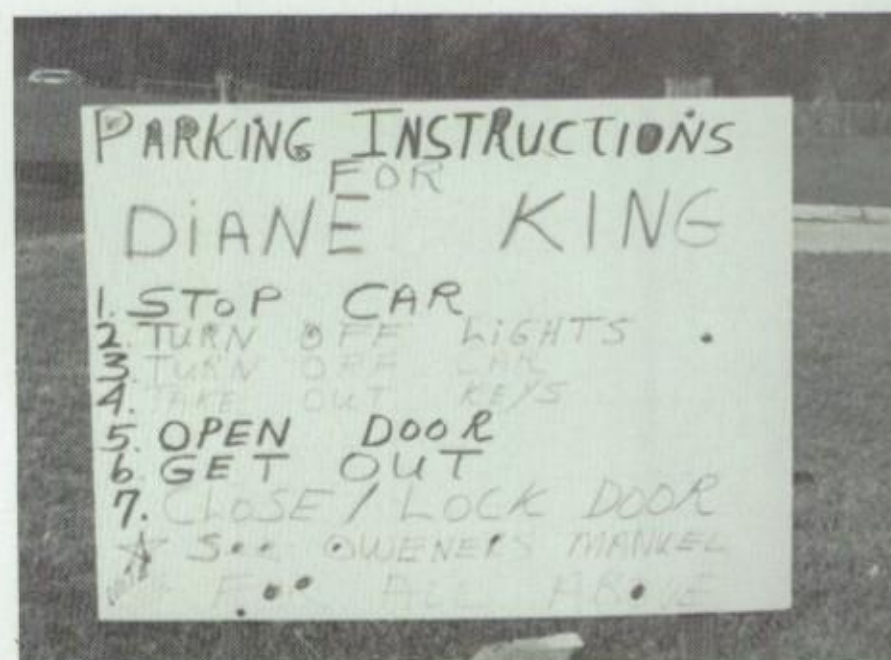 PARKING INSTRUCTIONS
FOR
DIANE KING
1. STOP CAR
2. TURN OFF LIGHTS
3. TURN OFF CAR
4. TAKE OUT KEYS
5. OPEN DOOR
6. GET OUT
7. CLOSE / LOCK DOOR
☆ See OWENERS MANUEL
FOR ALL ABOVE